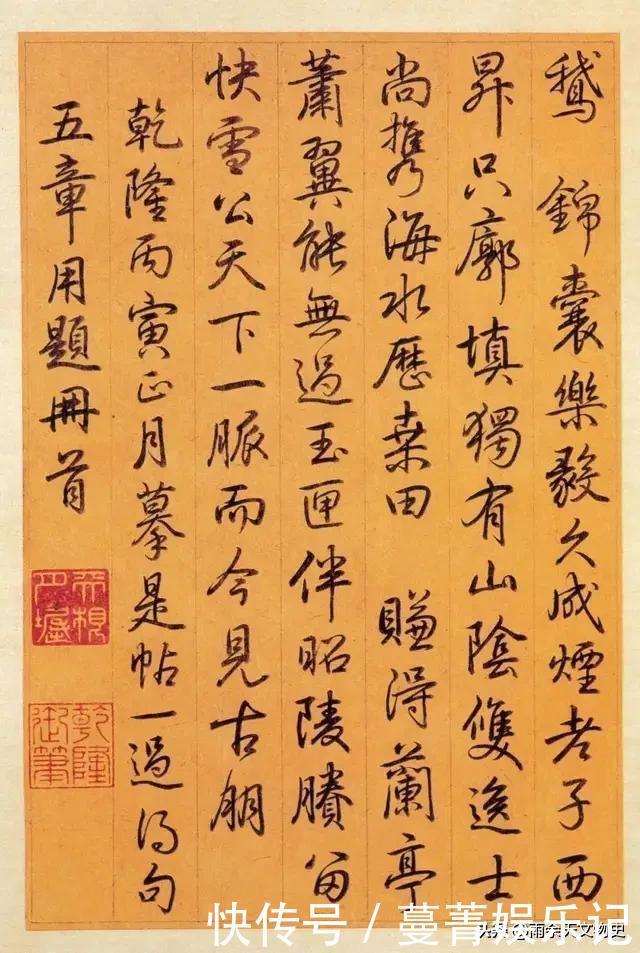 鹅 錦囊樂毅久成煙老子西
昇只廓填獨有山陰雙逸士
尚携海水歷桒田 賺淂蘭亭
蕭翼能無過玉匣伴昭陵賸留
快雪公天下一脈而今見古朋
乾隆丙寅正月摹是帖一過得句
五章用題冊首
乾隆御筆
快传号 / 蔓菁娱乐记
头条@雨余天文物史